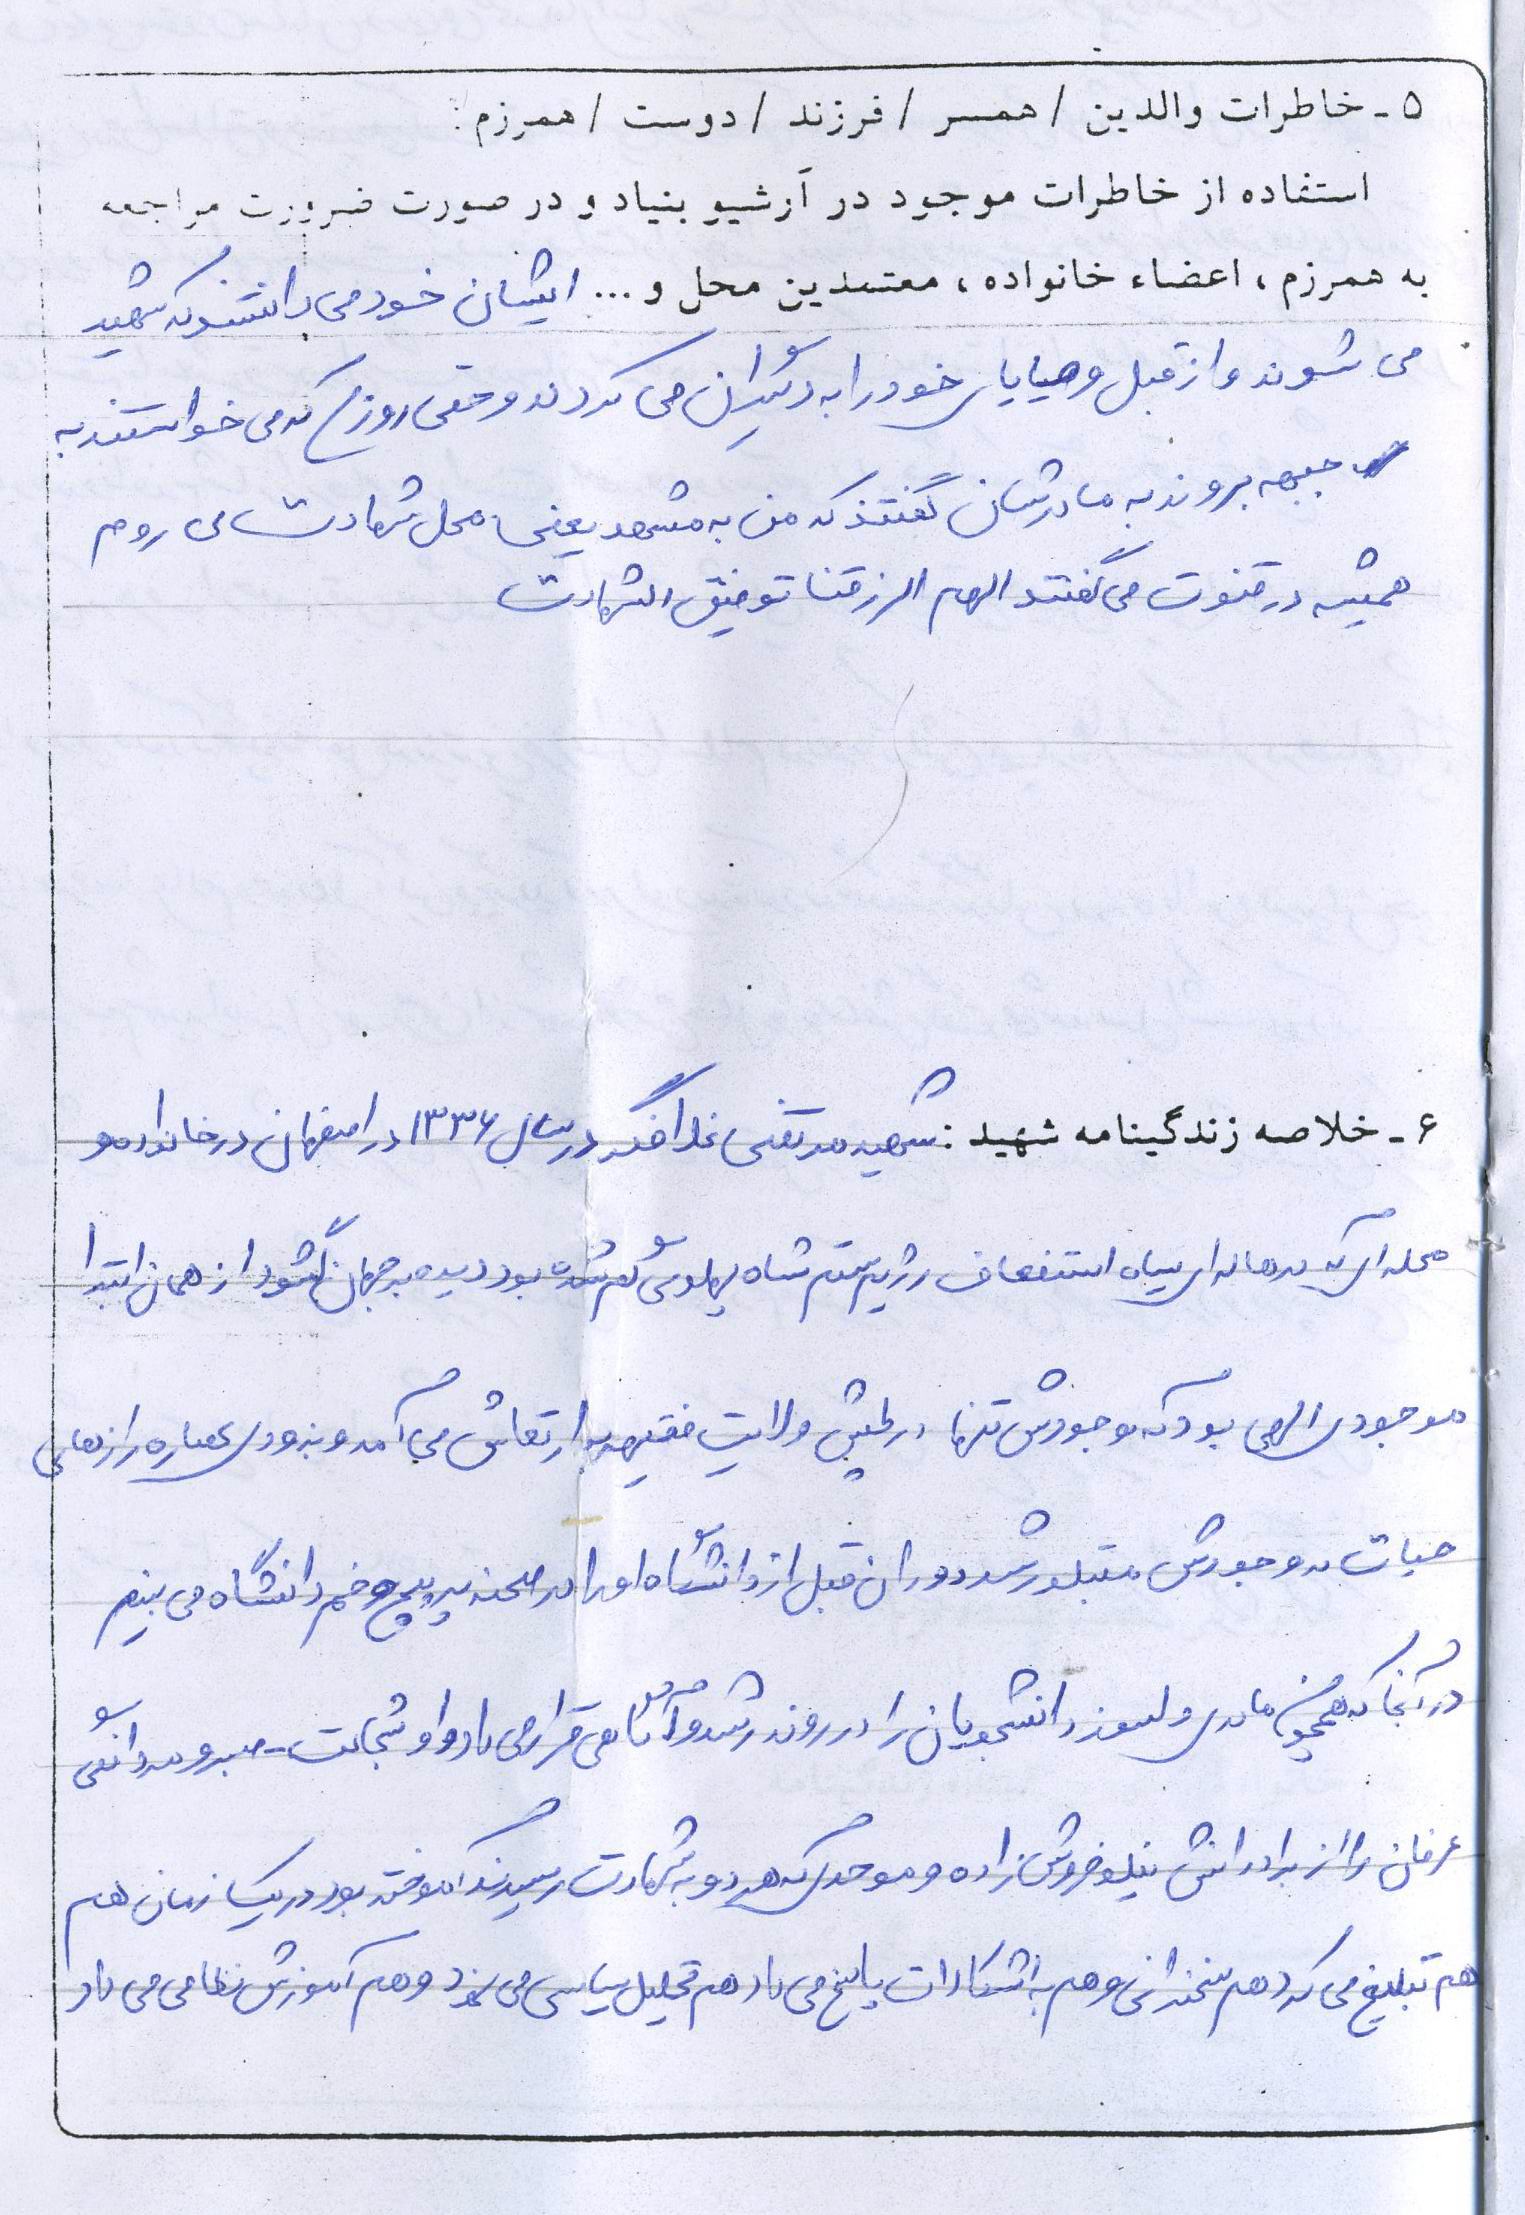 ۵ - خاطرات والدین / همسر / فرزند / دوست / همرزم :
استفاده از خاطرات موجود در آرشیو بنیاد و در صورت ضرورت مراجعه
به همرزم ، اعضاء خانواده ، معتمدین محل و ... ایشان خود می دانستند که شهید
می شوند و از قبل وصیایای خود را به دیگران می کردند و حتی روزی که می خواستند به
جبهه بروند به مادرشان گفتند که من به مشهد یعنی محل شهادت می روم
همیشه در قنوت می گفتند الهم الرزقنا توفیق الشهادت
۶ - خلاصه زندگینامه شهید : شهید مرتضی در سال ۱۳۳۶ در اصفهان در خانواده و
محله ای که در هاله ای سیاه استضعاف رژیم ستم شاه پهلوی گم شده بود دیده به جهان گشود از همان ابتدا
موجودی الهی بود که وجودش تنها در طپش ولایت فقیه به ارتعاش می آمد و بزودی عصاره رازهای
حیات در وجودش متبلور شد دوران قبل از دانشگاه او را در صحنه پر پیچ و خم دانشگاه می بینیم
در آنجا که همچون مادری دلسوز دانشجویان را در روند رشد و آگاهی قرار می داد او شجاعت - صبر و مردانگی
عرفان را از برادرانش نیلفروش زاده و موحدی که هر دو به شهادت رسیدند آموخته بود در یک زمان هم
هم تبلیغ می کرد هم سخنرانی و هم به اشکالات پاسخ می داد هم تحلیل سیاسی می نمود و هم آموزش نظامی می داد